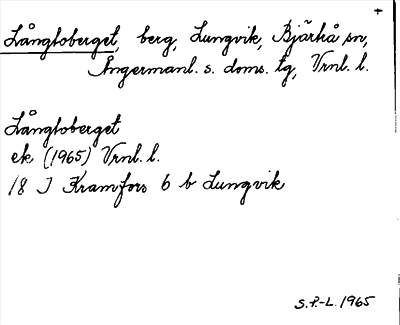 Långloberget, berg, Lungvik, Bjärtrå sn,
Ångermanl. s. doms. tg, Vrnl. l.
Långloberget
ek (1965) Vrnl. l.
18 I Kramfors 6 b Lungvik
S.P.-L. 1965